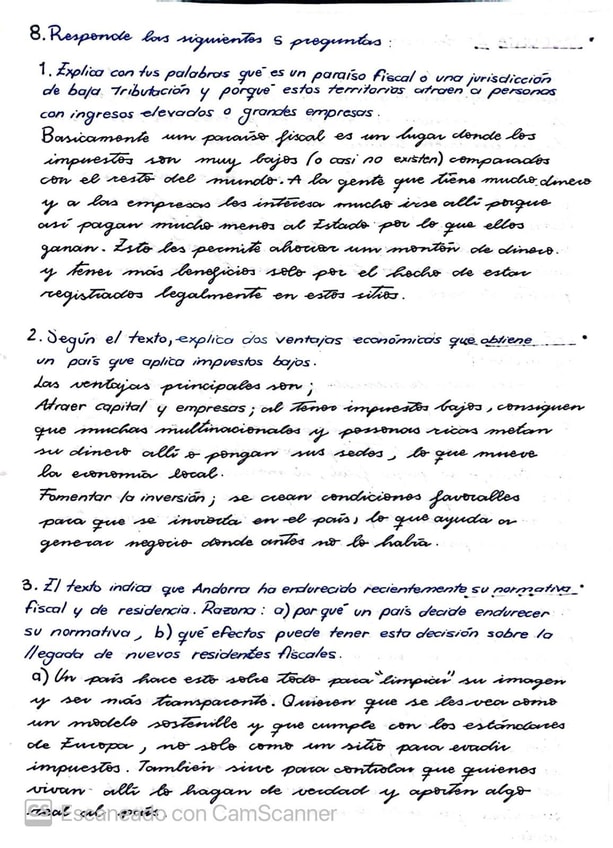 8. Responde las siguientes 5 preguntas:
1. Explica con tus palabras qué es un paraíso fiscal o una jurisdicción
de baja tributación y porqué estos territorios atraen a personas
con ingresos elevados o grandes empresas.
Basicamente un paraíso fiscal es un lugar donde los
impuestos son muy bajos (o casi no existen) comparados
con el resto del mundo. A la gente que tiene mucho dinero
y a las empresas les interesa mucho irse allí porque
así pagan mucho menos al Estado por lo que ellos
ganan. Esto les permite ahorrar un montón de dinero.
y tener más beneficios solo por el hecho de estar
registrados legalmente en estos sitios.
2. Según el texto, explica dos ventajas económicas que obtiene
un país que aplica impuestos bajos.
Las ventajas principales son;
Atraer capital y empresas; al tener impuestos bajos, consiguen
que muchas multinacionales y personas ricas metan
su dinero allí o pongan sus sedes, lo que mueve
la economía local.
Fomentar la inversión; se crean condiciones favorables
para que se invierta en el país, lo que ayuda a
generar negocio donde antes no lo había.
3. El texto indica que Andorra ha endurecido recientemente su normativa
fiscal y de residencia. Razona: a) por qué un país decide endurecer
su normativa, b) qué efectos puede tener esta decisión sobre la
llegada de nuevos residentes fiscales.
a) Un país hace esto sobre todo para "limpiar" su imagen
y ser más transparente. Quieren que se les vea como
un modelo sostenible y que cumple con los estándares
de Europa, no solo como un sitio para evadir
impuestos. También sirve para controlar que quienes
vivan allí lo hagan de verdad y aporten algo
real al país.
CS Escaneado con CamScanner